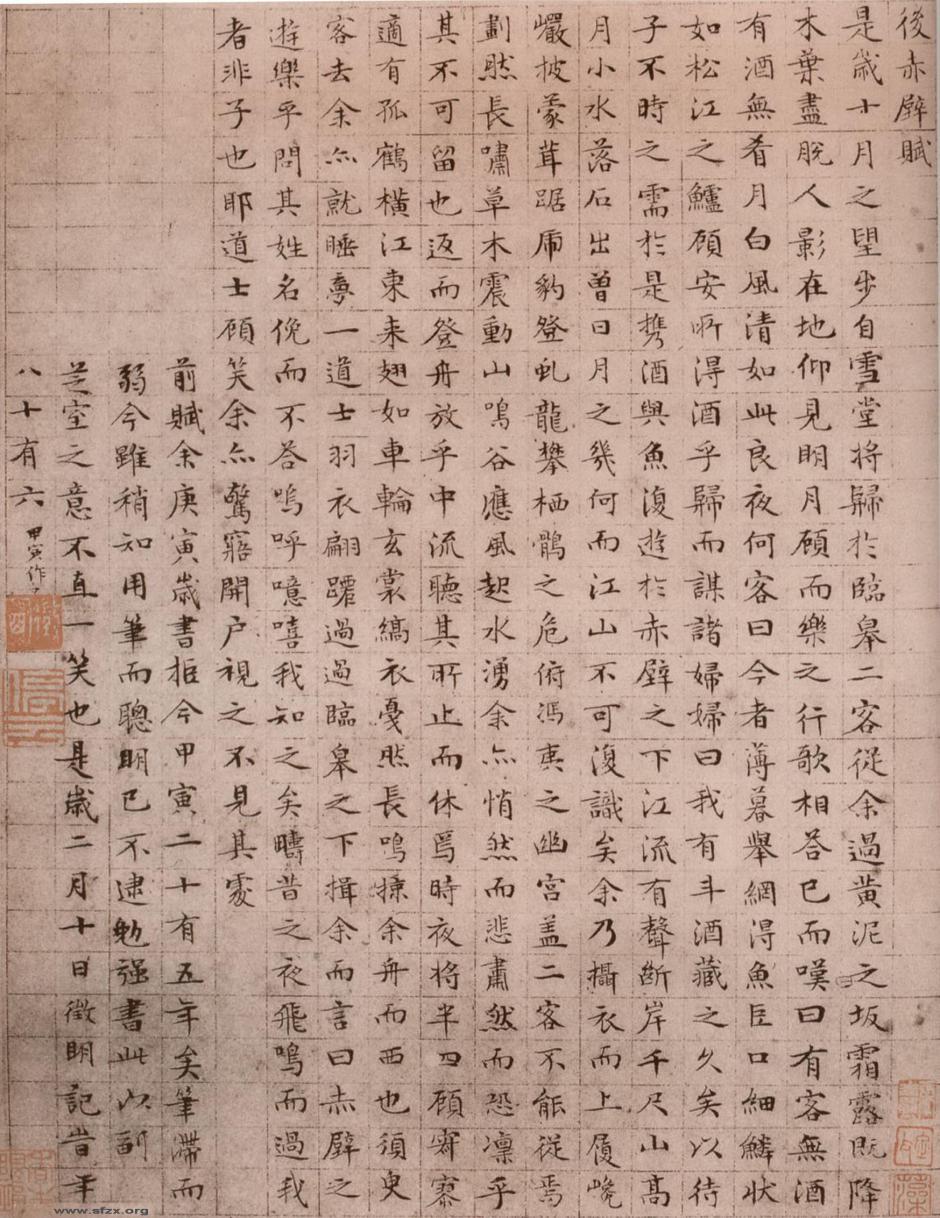 後赤壁賦
是歲十月之望步自雪堂將歸於臨皋二客從余過黃泥之坂霜露既降
木葉盡脫人影在地仰見明月顧而樂之行歌相答已而嘆曰有客無酒
有酒無肴月白風清如此良夜何客曰今者薄暮舉網得魚巨口細鱗狀
如松江之鱸顧安所得酒乎歸而謀諸婦婦曰我有斗酒藏之久矣以待
子不時之需於是攜酒與魚復遊於赤壁之下江流有聲斷岸千尺山高
月小水落石出曾日月之幾何而江山不可復識矣余乃攝衣而上履巉
巖披蒙茸踞虎豹登虬龍攀栖鶻之危俯馮夷之幽宮盖二客不能從焉
劃然長嘯草木震動山鳴谷應風起水湧余亦悄然而悲肅然而恐凛乎
其不可留也返而登舟放乎中流聽其所止而休焉時夜將半四顧寂寥
適有孤鶴橫江東来翅如車輪玄裳縞衣戛然長鳴掠余舟而西也須臾
客去余亦就睡夢一道士羽衣翩躚過過臨皋之下揖余而言曰赤壁之
遊樂乎問其姓名俛而不答嗚呼噫嘻我知之矣疇昔之夜飛鳴而過我
者非子也耶道士顧笑余亦驚寤開户視之不見其處
前賦余庚寅歲書拒今甲寅二十有五年矣筆滯而
弱今雖稍知用筆而聰明已不逮勉強書此以副
芝室之意不直一笑也是歲二月十日徵明記旹年
八十有六 甲寅作
www.sfzx.org